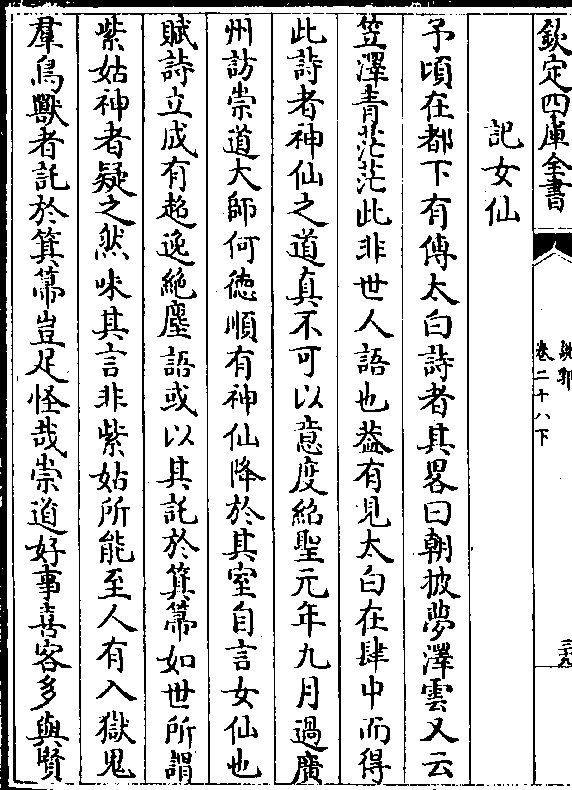 欽定四庫全書
說郛
卷二十八下
記女仙
予頃在都下有傳太白詩者其畧曰朝披夢澤雲又云
笠澤青茫茫此非世人語也葢有見太白在肆中而得
此詩者神仙之道真不可以意度紹聖元年九月過廣
州訪崇道大師何徳順有神仙降於其室自言女仙也
賦詩立成有超逸絶塵語或以其託於箕箒如世所謂
紫姑神者疑之然味其言非紫姑所能至人有入獄鬼
羣鳥獸者託於箕箒豈足怪哉崇道好事喜客多與賢